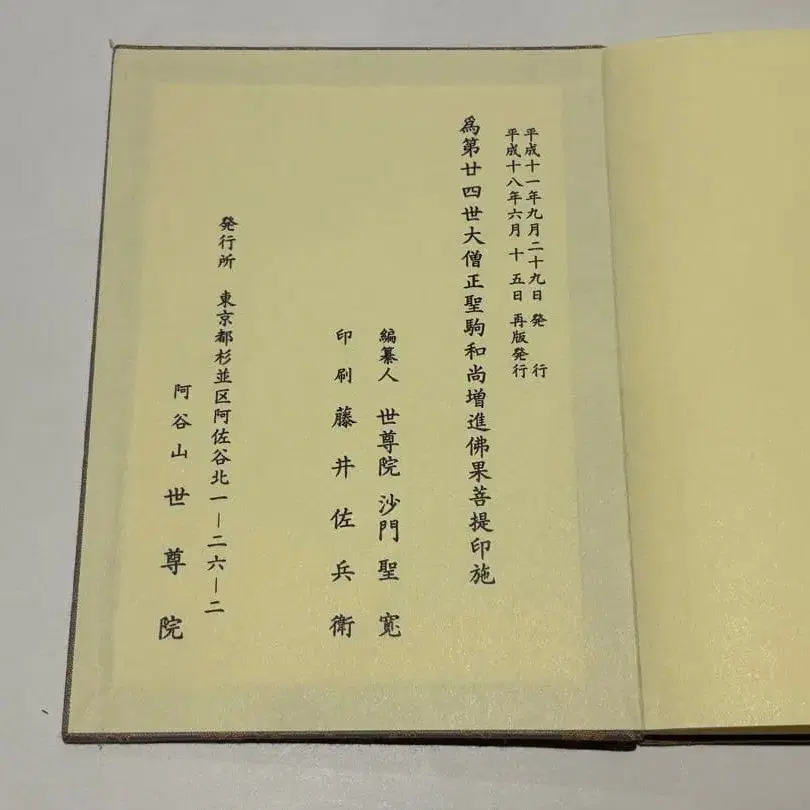 平成十一年九月二十九日 発 行
平成十八年六月 十 五日 再版発行
爲第廿四世大僧正聖駒和尚増進佛果菩提印施
編纂人 世尊院 沙門 聖 寛
印 刷 藤 井 佐 兵 衛
発行所 東京都杉並区阿佐谷北一ー二六ー二
阿谷山 世 尊 院